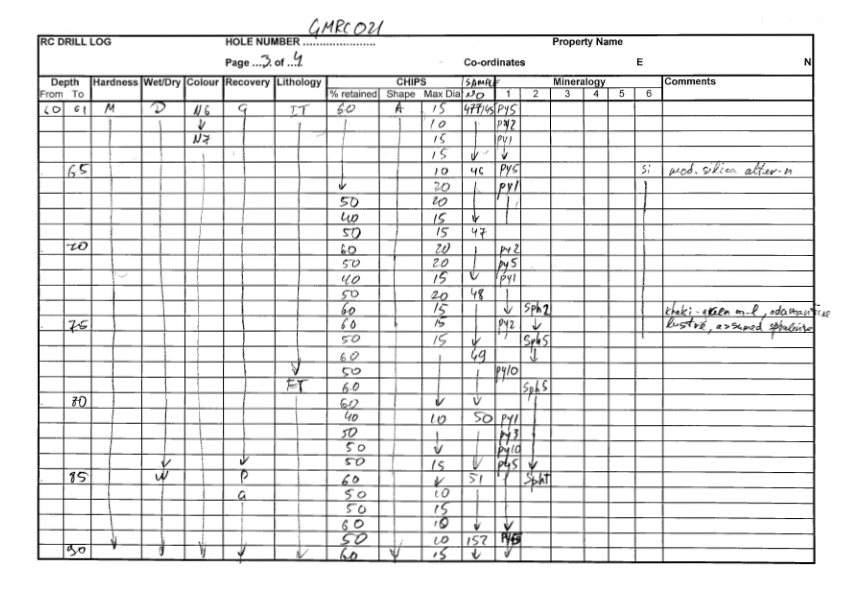 GMRC021
RC DRILL LOG HOLE NUMBER ........................ Property Name
Page ...3. of .4. Co-ordinates E N
Depth Hardness Wet/Dry Colour Recovery Lithology CHIPS SAMPLE Mineralogy Comments
From To % retained Shape Max Dia NO 1 2 3 4 5 6
60 61 M D N6 G IT 60 A 15 47745 PY5
10 PY2
N7 15 PY1
15
65 10 46 PY5 Si mod. silica alter-n
20 PY1
50 20
40 15
50 15 47
70 60 20 PY2
50 20 PY5
40 15 PY1
50 20 48
60 15 Sph2 khaki-green m-l, adamantine
75 60 15 PY2 lustre, assumed sphalerite
50 15 Sph5
60 49
50 PY10
FT 60 Sph5
80 60
40 10 50 PY1
50 PY3
50 PY10
50 15 PY5
85 W P 60 51 SphT
G 50 10
50 15
60 10
50 10 152
90 60 15